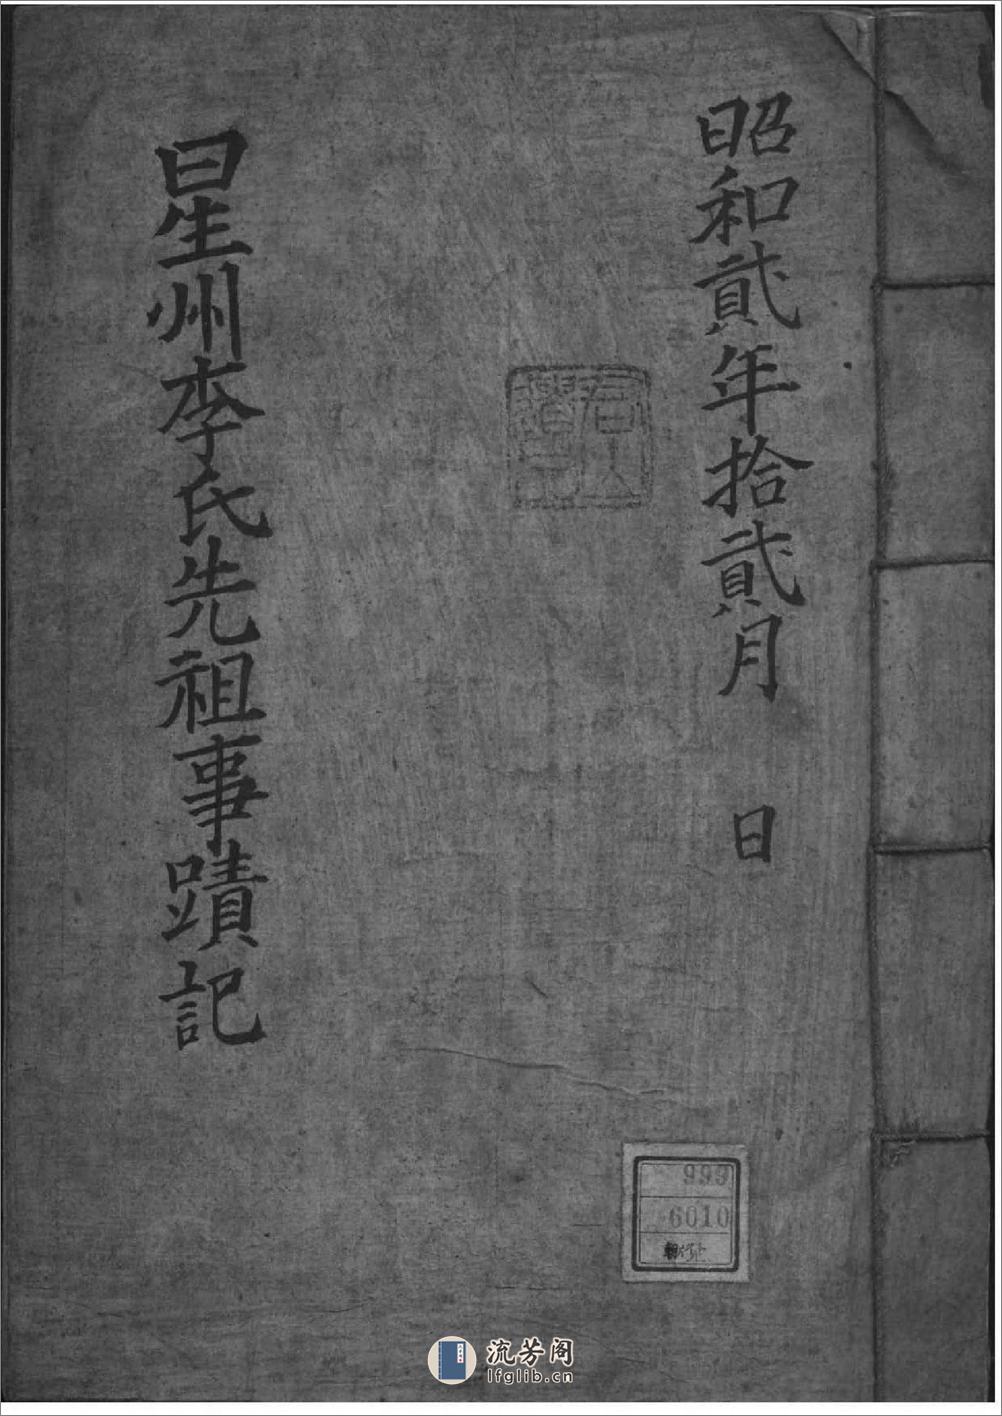 昭和貳年拾貳月　日
星州李氏先祖事蹟記
999
6010
流芳阁
lfglib.cn